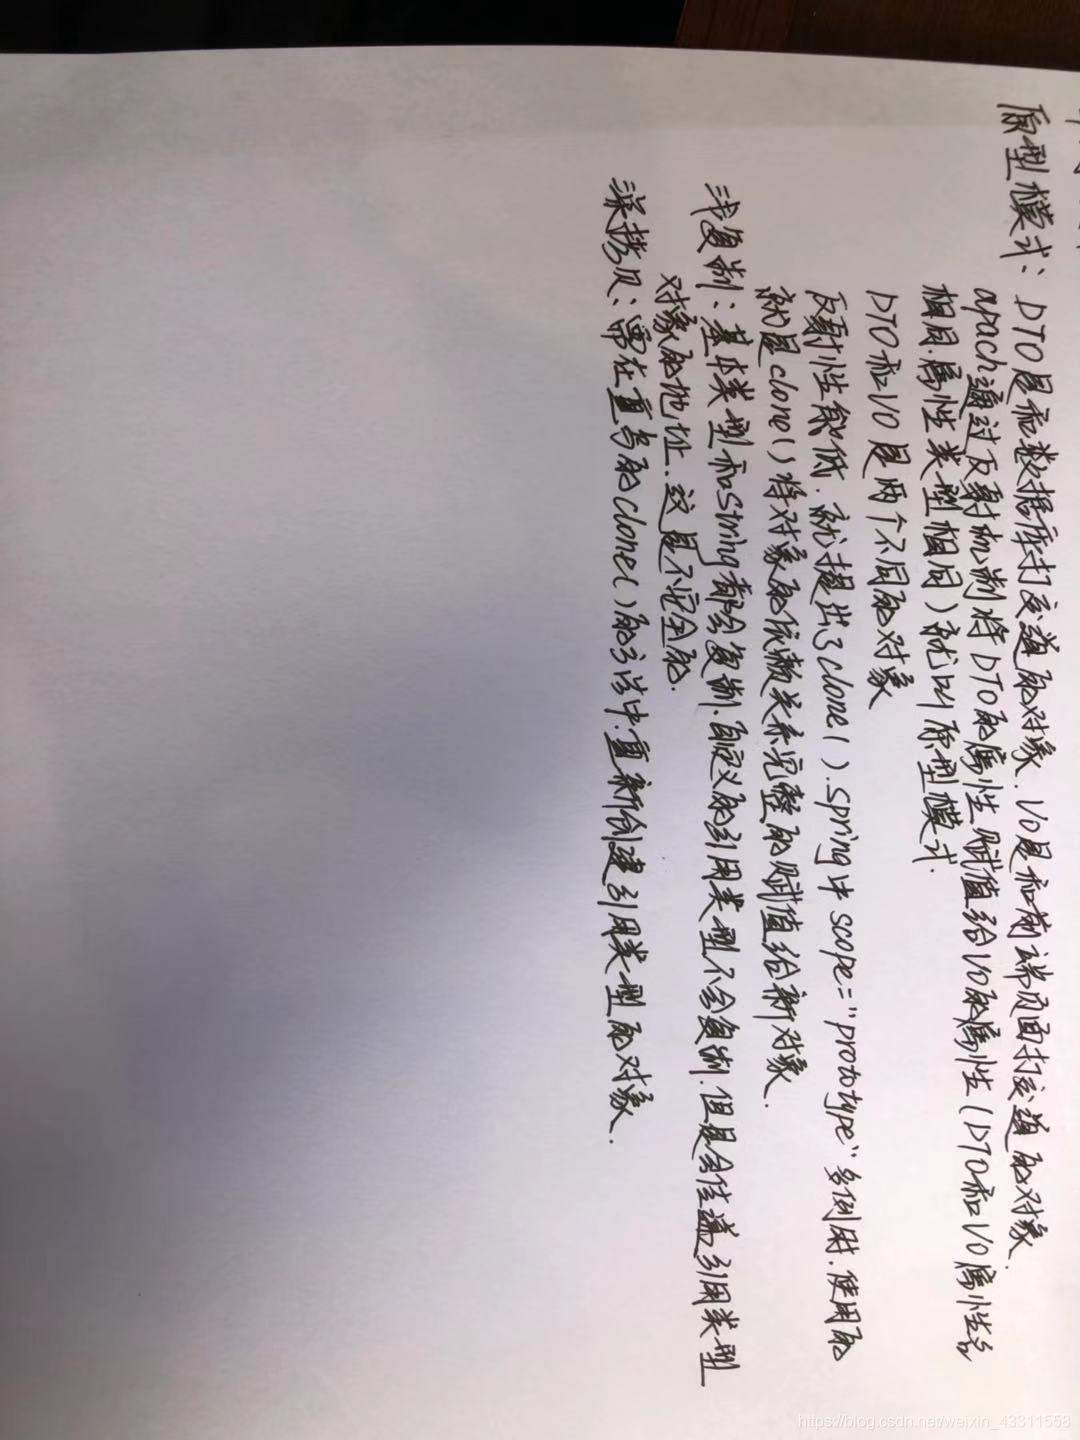 原型模式：DTO是和数据库打交道的对象．VO是和前端页面打交道的对象．
apach通过反射机制将DTO的属性赋值给VO的属性(DTO和VO属性名
相同．属性类型相同)就叫原型模式．
DTO和VO是两个不同的对象
反射性能低．就提出了clone()．spring中scope="prototype"多例时．使用的
就是clone()将对象的依赖关系完整的赋值给新对象．
浅复制：基本类型和String都会复制．自定义的引用类型不会复制．但是会传递引用类型
对象的地址．这是不安全的．
深拷贝：需在重写的clone()的方法中．重新创建引用类型的对象．
https://blog.csdn.net/weixin_43311558